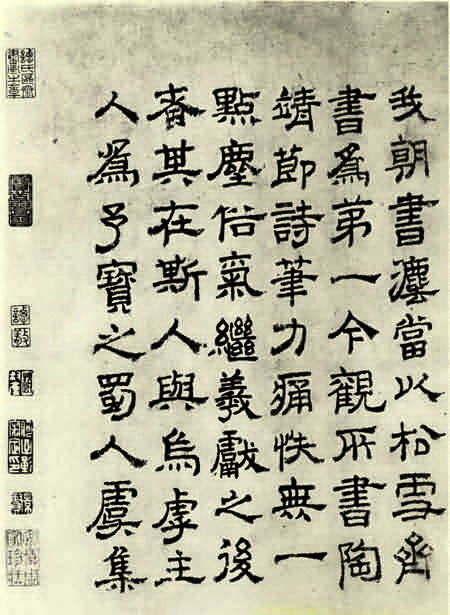 我朝書灋當以松雪齊
書爲第一今觀所書陶
靖節詩筆力痛快無一
點塵俗氣繼羲獻之後
者其在斯人與烏虖主
人爲予寶之蜀人虞集